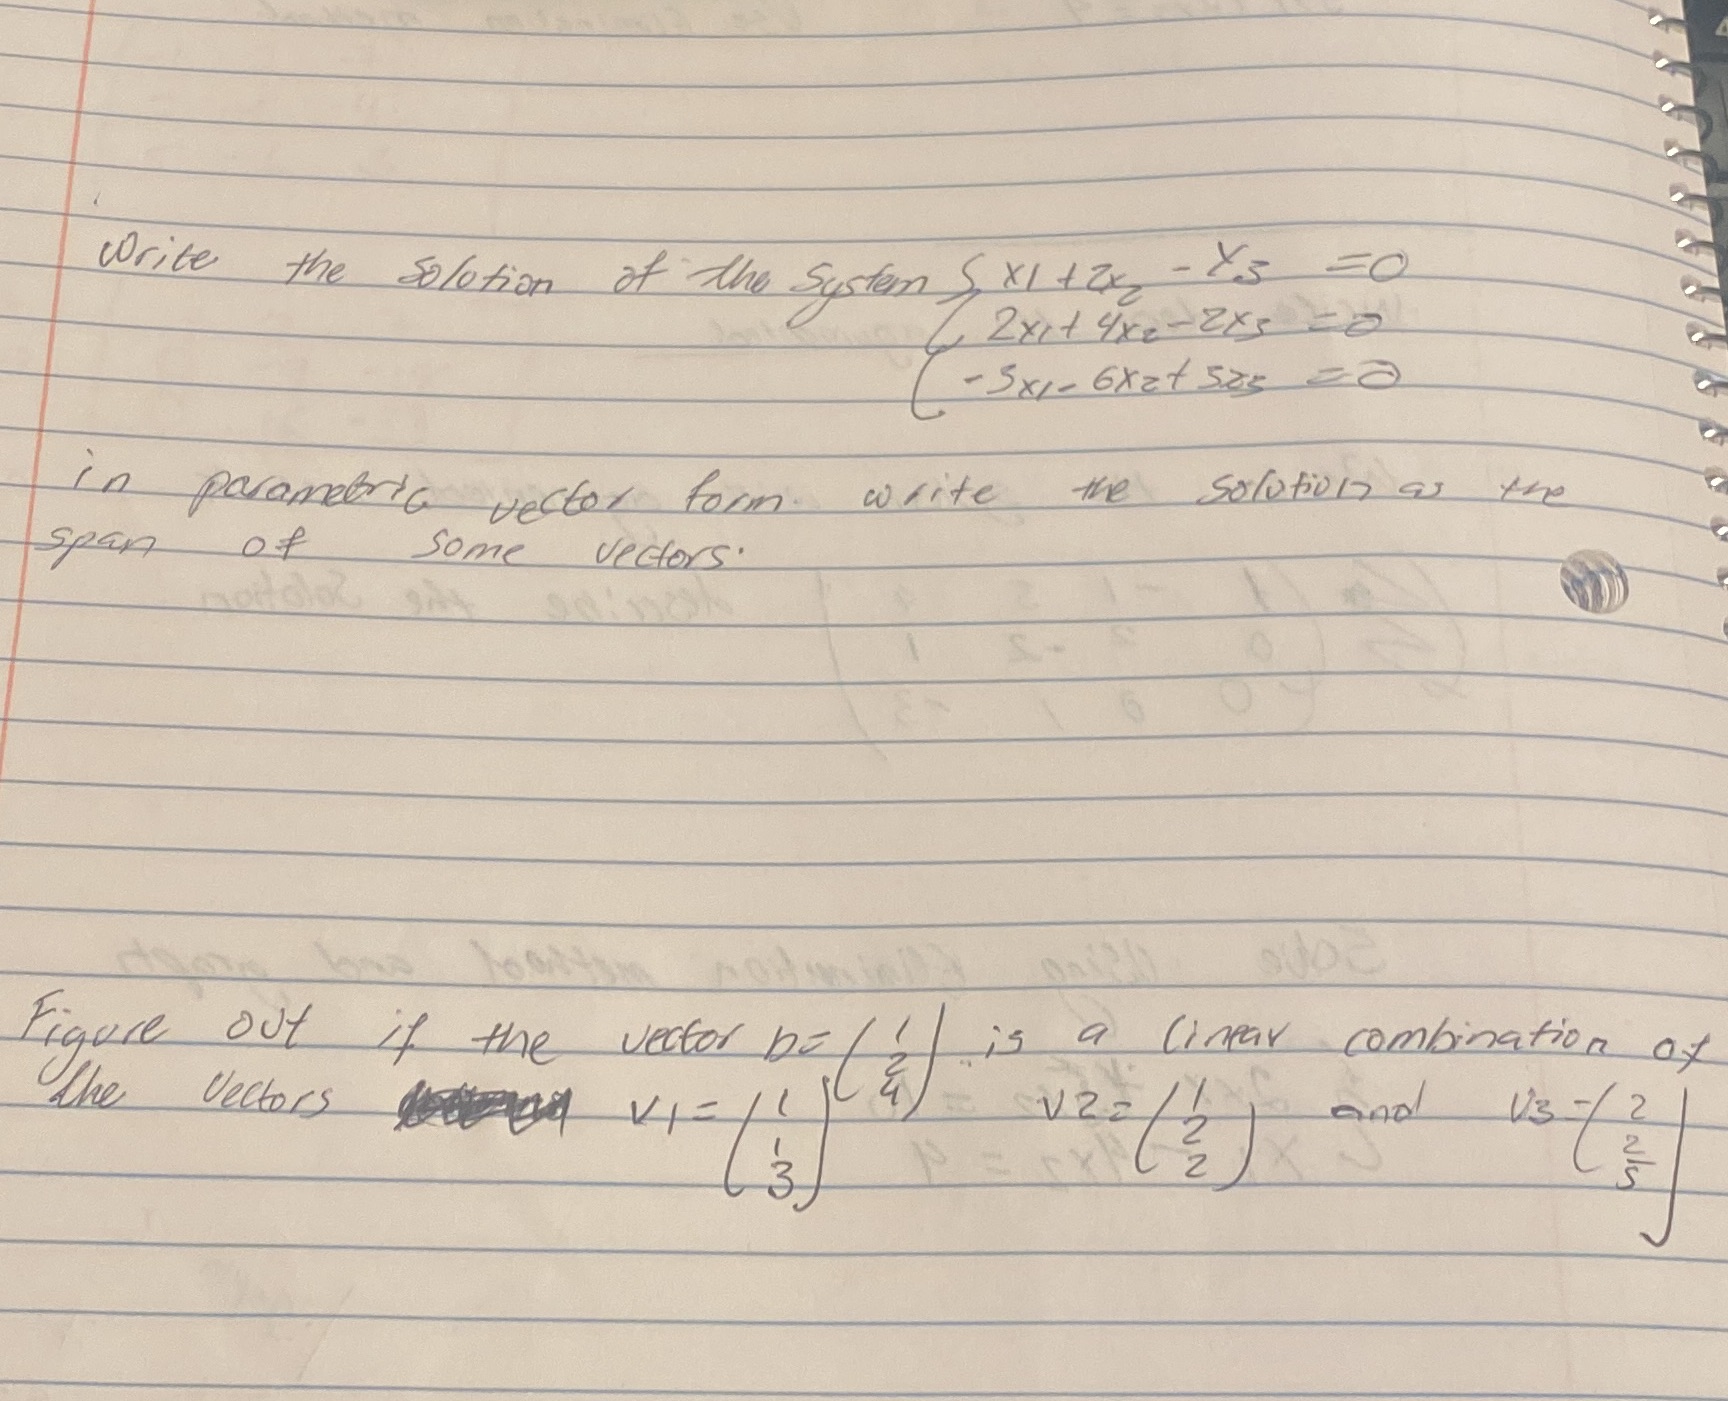 Write the solution of the system { x1 + 2x2 - x3 = 0
2x1 + 4x2 - 2x3 = 0
-3x1 - 6x2 + 3x3 = 0
in parametric vector form. write the solution as the
span of some vectors.
Figure out if the vector b = (1 2 4) is a linear combination of
the vectors v1 = (1 1 3) v2 = (1 2 2) and v3 = (2 2 5)